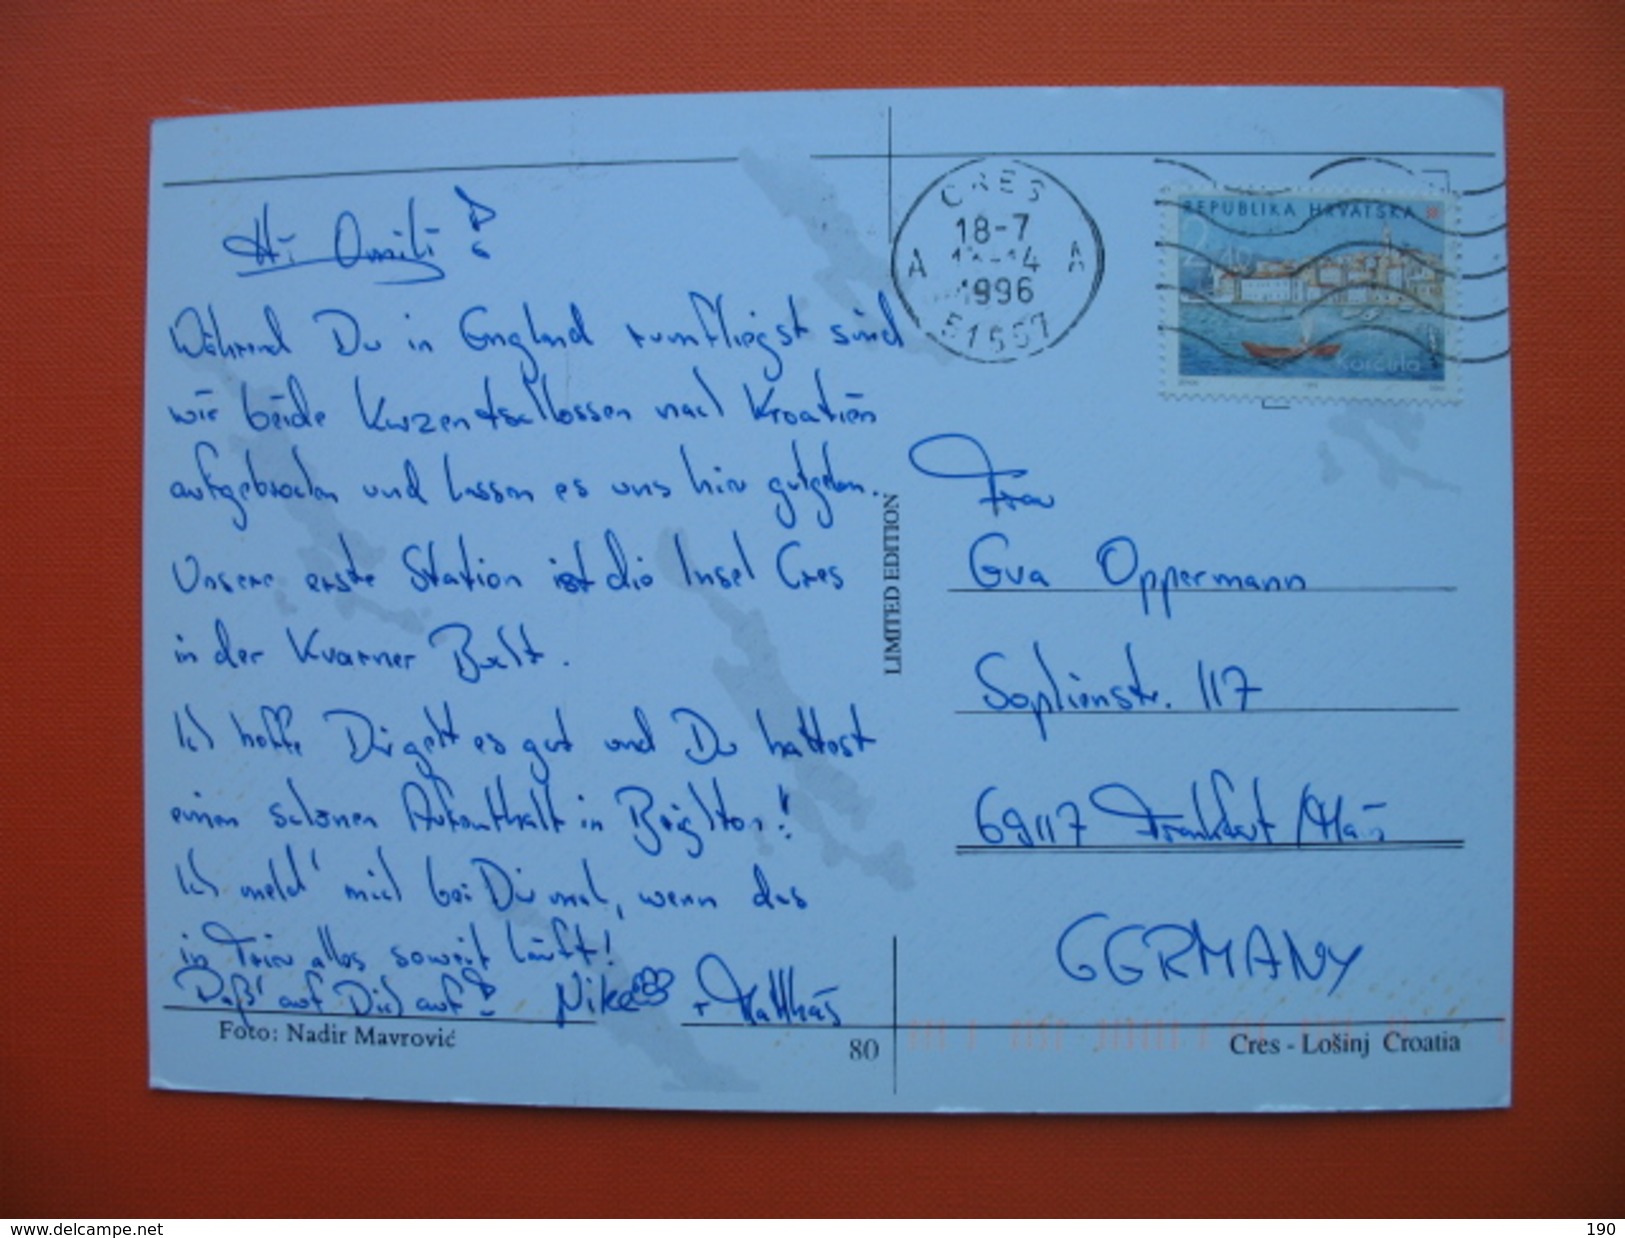 Hi Omili!
Während Du in England rumfliegst sind
wir beide kurzentschlossen nach Kroatien
aufgebrochen und lassen es uns hier gutgehen.
Unsere erste Station ist die Insel Cres
in der Kvarner Bucht.
Ich hoffe Dir geht es gut und Du hattest
einen schönen Aufenthalt in Brighton!
Ich meld' mich bei Dir mal, wenn das
in Trier alles soweit läuft!
Paß' auf Dich auf! Nike + Matthias
Foto: Nadir Mavrović
80
LIMITED EDITION
CRES
18-7
A 14 A
1996
51557
REPUBLIKA HRVATSKA
2,40
Korčula
Frau
Eva Oppermann
Sophienstr. 117
69117 Frankfurt/Main
GERMANY
Cres - Lošinj Croatia
www.delcampe.net
190